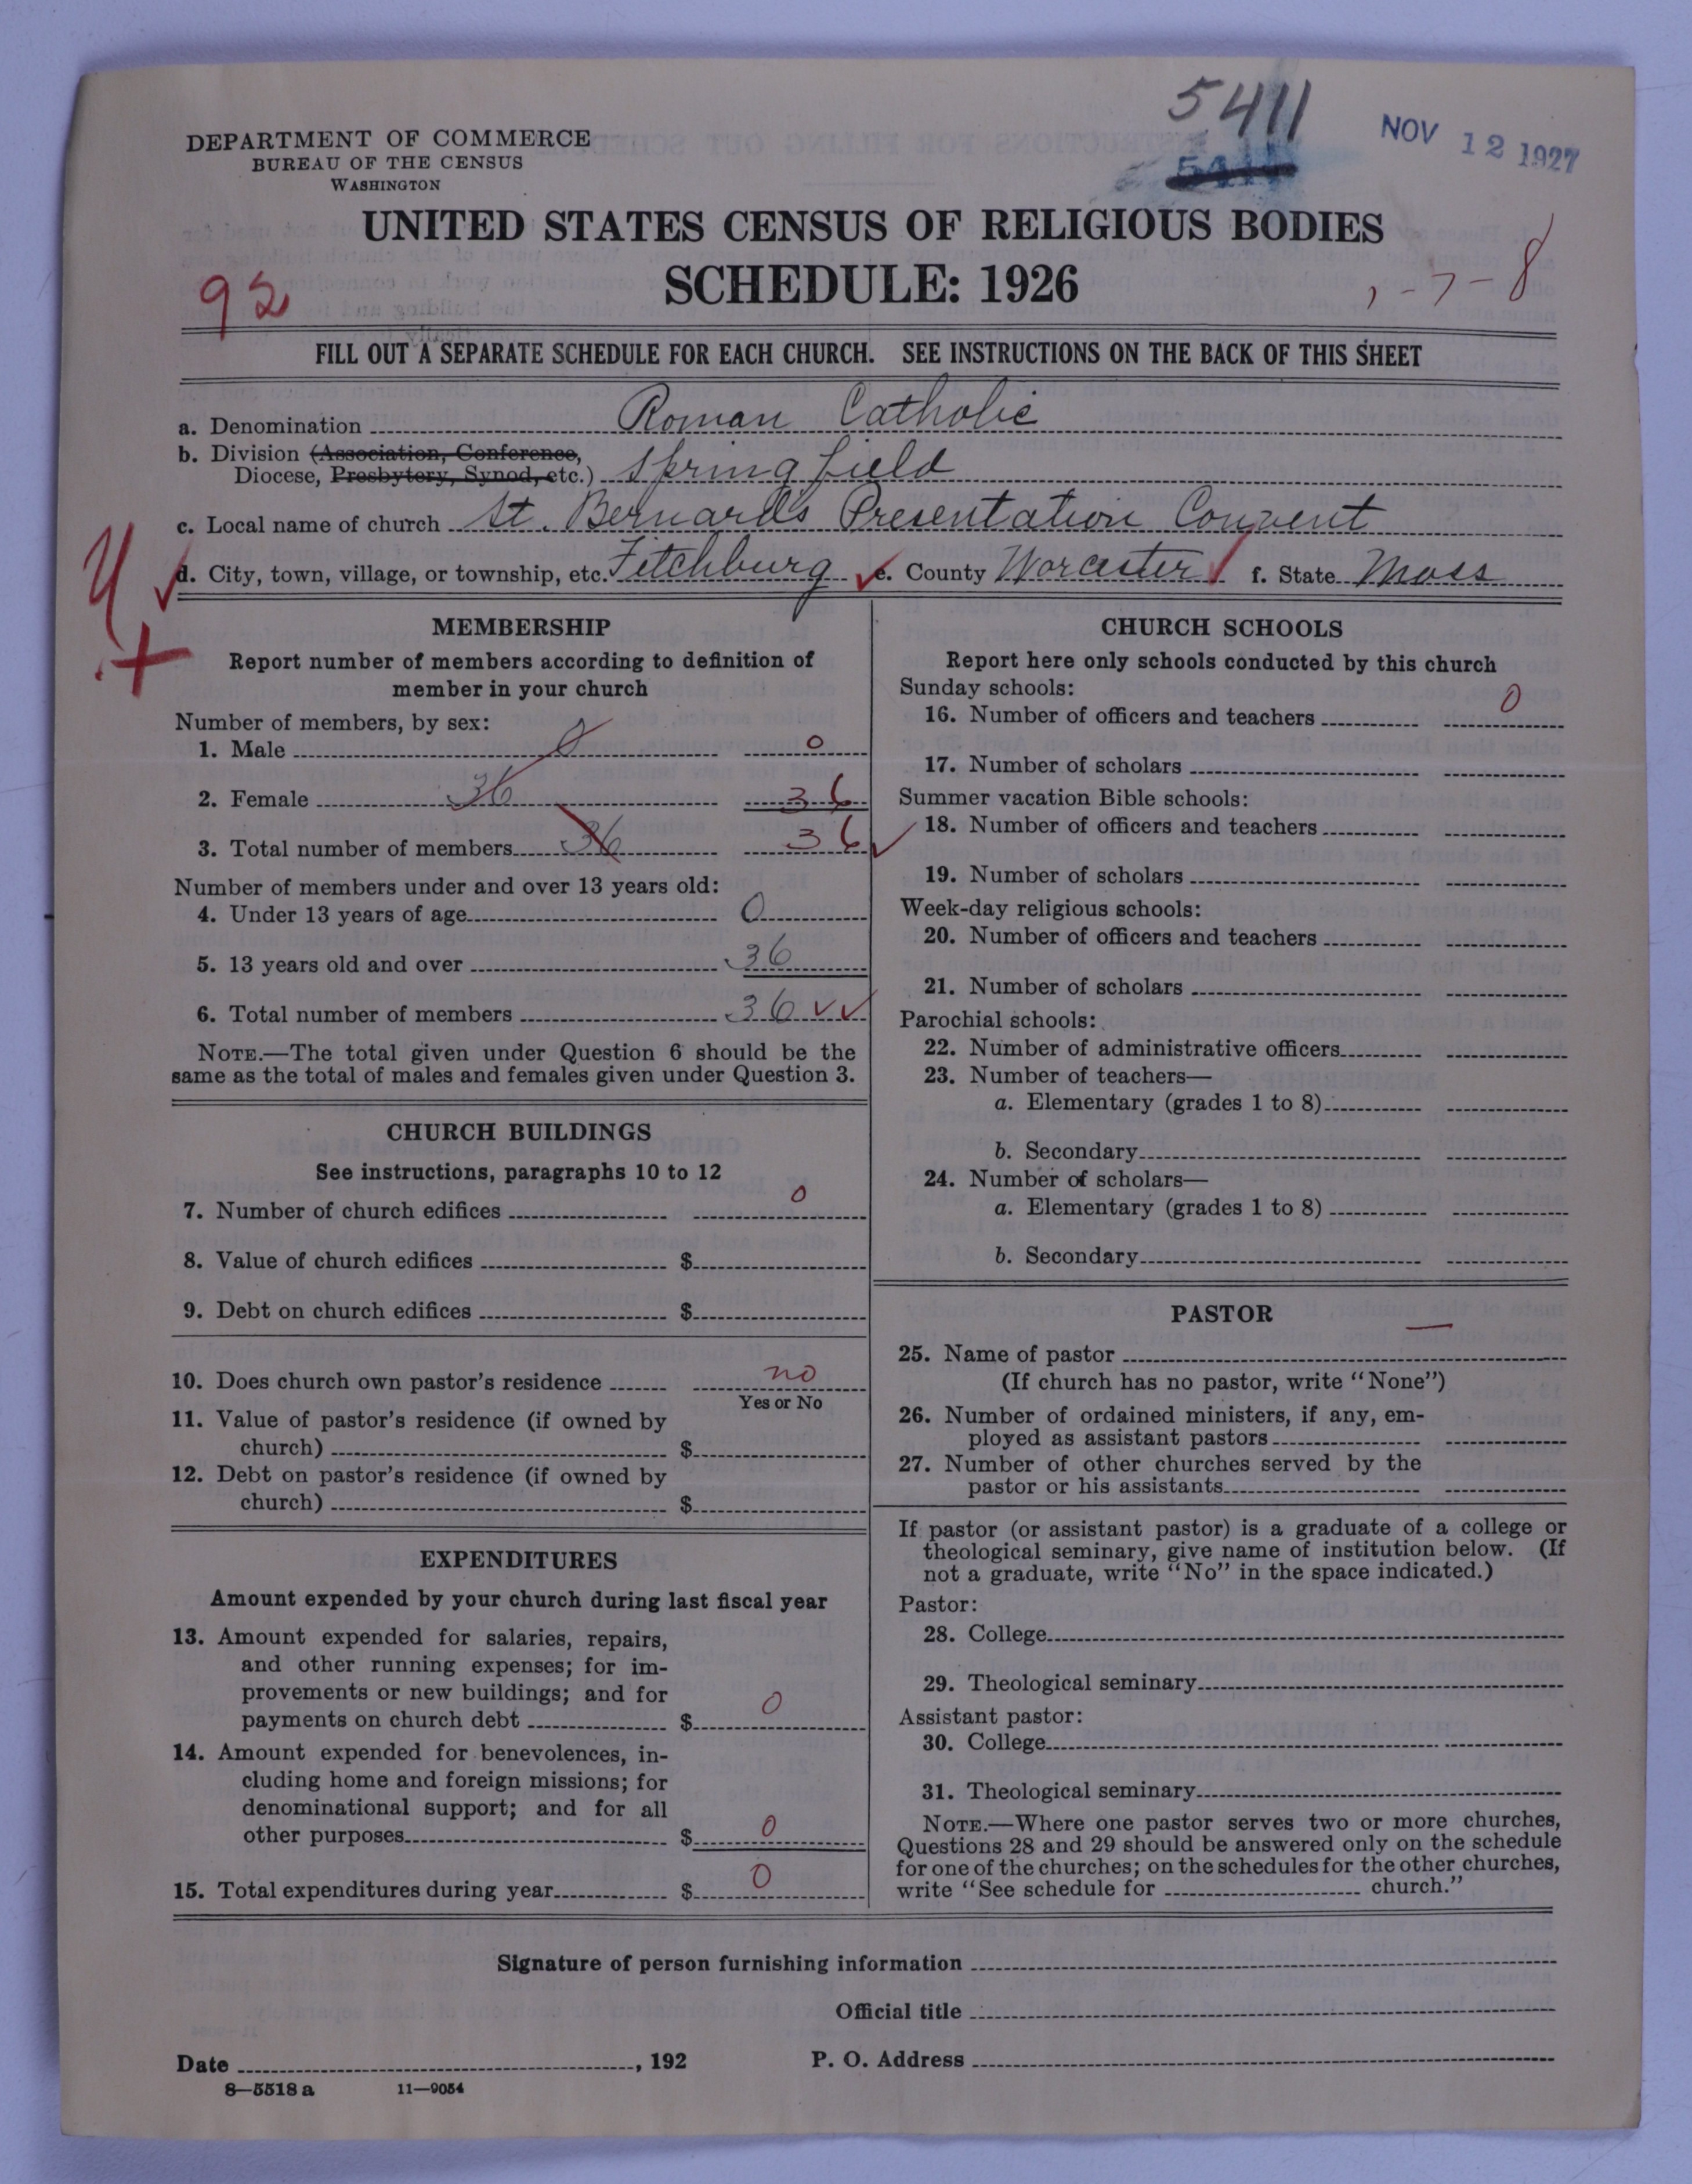 5411
NOV 12 1927
DEPARTMENT OF COMMERCE
BUREAU OF THE CENSUS
WASHINGTON
UNITED STATES CENSUS OF RELIGIOUS BODIES
SCHEDULE: 1926
92
1-7-8
FILL OUT A SEPARATE SCHEDULE FOR EACH CHURCH. SEE INSTRUCTIONS ON THE BACK OF THIS SHEET
a. Denomination Roman Catholic
b. Division (Association, Conference,
Diocese, Presbytery, Synod, etc.) Springfield
c. Local name of church St. Bernard's Presentation Convent
d. City, town, village, or township, etc. Fitchburg e. County Worcester f. State Mass
MEMBERSHIP
Report number of members according to definition of
member in your church
Number of members, by sex:
1. Male 0 0
2. Female 36 36
3. Total number of members 36 36
Number of members under and over 13 years old:
4. Under 13 years of age 0
5. 13 years old and over 36
6. Total number of members 36
NOTE.—The total given under Question 6 should be the
same as the total of males and females given under Question 3.
CHURCH BUILDINGS
See instructions, paragraphs 10 to 12
7. Number of church edifices 0
8. Value of church edifices $
9. Debt on church edifices $
10. Does church own pastor's residence no
Yes or No
11. Value of pastor's residence (if owned by
church) $
12. Debt on pastor's residence (if owned by
church) $
EXPENDITURES
Amount expended by your church during last fiscal year
13. Amount expended for salaries, repairs,
and other running expenses; for im-
provements or new buildings; and for
payments on church debt $ 0
14. Amount expended for benevolences, in-
cluding home and foreign missions; for
denominational support; and for all
other purposes $ 0
15. Total expenditures during year $ 0
CHURCH SCHOOLS
Report here only schools conducted by this church
Sunday schools:
16. Number of officers and teachers 0
17. Number of scholars
Summer vacation Bible schools:
18. Number of officers and teachers
19. Number of scholars
Week-day religious schools:
20. Number of officers and teachers
21. Number of scholars
Parochial schools:
22. Number of administrative officers
23. Number of teachers—
a. Elementary (grades 1 to 8)
b. Secondary
24. Number of scholars—
a. Elementary (grades 1 to 8)
b. Secondary
PASTOR
25. Name of pastor —
(If church has no pastor, write "None")
26. Number of ordained ministers, if any, em-
ployed as assistant pastors
27. Number of other churches served by the
pastor or his assistants
If pastor (or assistant pastor) is a graduate of a college or
theological seminary, give name of institution below. (If
not a graduate, write "No" in the space indicated.)
Pastor:
28. College
29. Theological seminary
Assistant pastor:
30. College
31. Theological seminary
NOTE.—Where one pastor serves two or more churches,
Questions 28 and 29 should be answered only on the schedule
for one of the churches; on the schedules for the other churches,
write "See schedule for church."
Signature of person furnishing information
Official title
Date , 192 P. O. Address
8—5518 a 11—9054